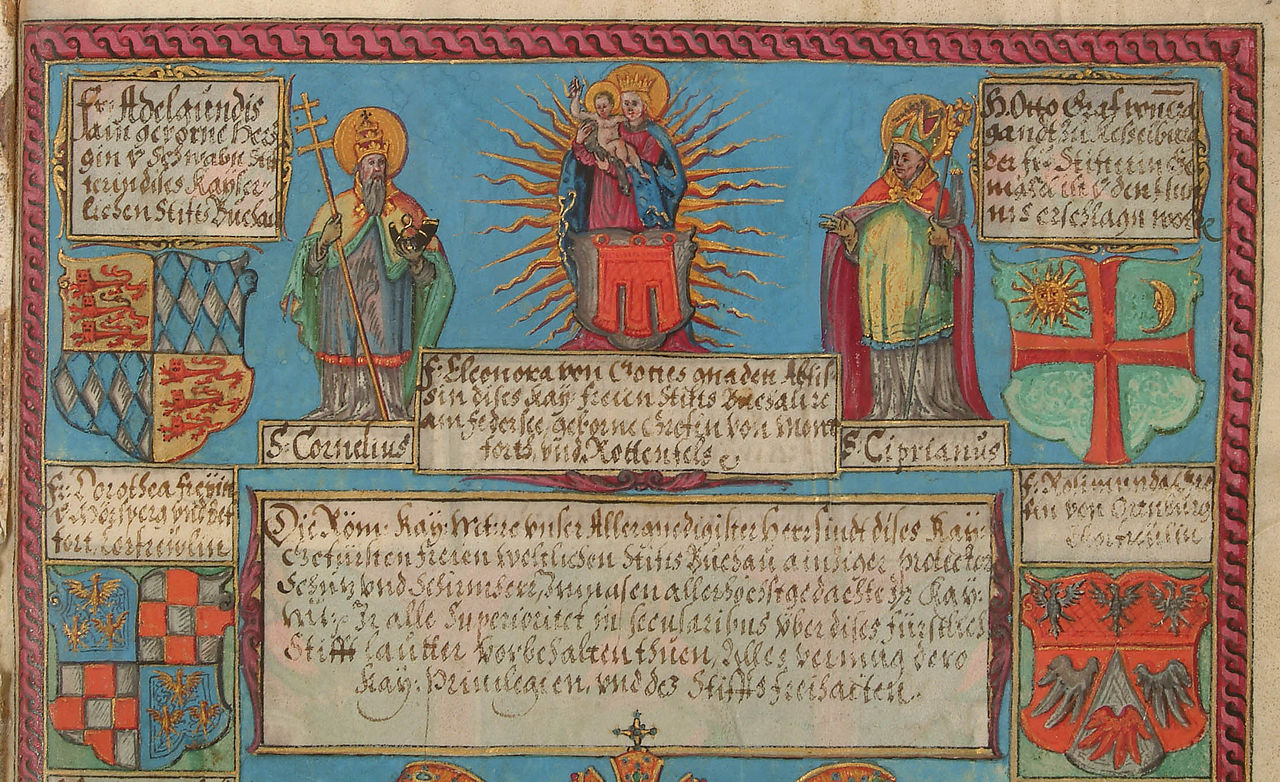 Fr. Adelgundis
ain geborne Herz
gin v. Schwabn Stif
terin dises Kayser
lichen Stiffts Buchau
H. Otto Graf
der fr. Stiffterin Ge
mahl
erschlagn worde
F. Eleonora von Gottes gnaden Abtis
sin dises Kay. freien Stiffts Buchau
am federsee, geborne Grefin von Mont
fortt, und Rottenfels
S. Cornelius
S. Ciprianus
Fr. Dorothea freyin
v. Mörsperg und Bef
fort
von Ortenburg
Die Röm. Kay. Mt. etc vnser Allergnedigister Herr sindt dises Kay.
Gefürsten freien weltlichen Stiffts Buchau ainziger Protector
Schuz vnd Schirmherr, Inmasen allerhöchstgedachte Ir Kay.
Mt. Ir alle Superioritet in secularibus vber dises fürstlich
Stifft lautter vorbehalten thuen, Alles vermüg dero
Kay. Privilegien, vnd des Stiffts freihaitten.